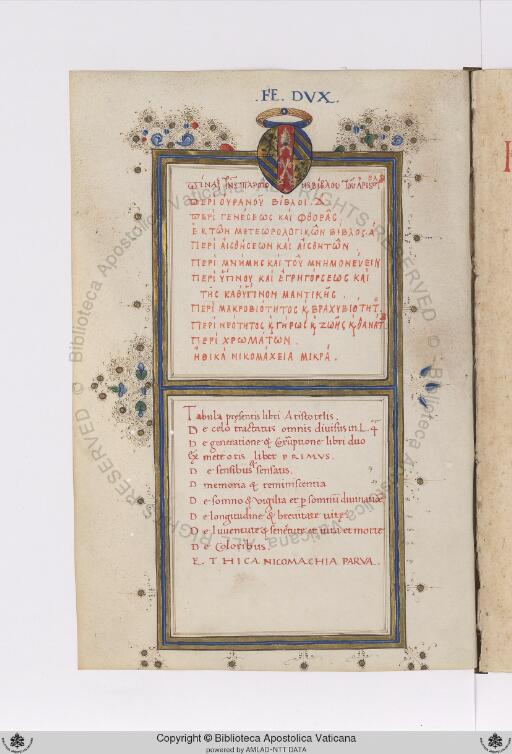 .FE. DVX.
ΠΊΝΑΞ ΤΗ͂Σ ΠΑΡΟΎΣΗΣ ΒΊΒΛΟΥ ΤΟΥ͂ ἈΡΙΣΟΤ
ΠΕΡῚ ΟΥΡΑΝΟΥ ΒΊΒΛΟΙ. Δ
ΠΕΡῚ ΓΕΝΕΣΕΩΣ ΚΑῚ ΦΘΟΡΑ͂Σ
ἘΚ ΤΩ͂Ν ΜΕΤΕΩΡΟΛΟΓΙΚΩ͂Ν ΒΙΒΛΟΣ. Α
ΠΕΡῚ ΑΙΣΘΉΣΕΩΝ ΚΑῚ ΑΙΣΘΗΤΩ͂Ν
ΠΕΡῚ ΜΝΉΜΗΣ ΚΑῚ ΤΟΥ͂ ΜΝΗΜΟΝΕΎΕΙΝ
ΠΕΡῚ ΎΠΝΟΥ ΚΑῚ ΕΓΡΗΓΌΡΣΕΩΣ ΚΑῚ
ΤΗ͂Σ ΚΑΘΎΠΝΟΝ ΜΑΝΤΙΚΗ͂Σ.
ΠΕΡῚ ΜΑΚΡΟΒΙΌΤΗΤΟΣ Κ, ΒΡΑΧΥΒΙΌΤΗΤ
ΠΕΡῚ ΝΕΌΤΗΤΟΣ Κ, ΓΉΡΩΣ Κ, ΖΩΗ͂Σ Κ, ΘΑΝΆΤ
ΠΕΡῚ ΧΡΩΜΆΤΩΝ.
ἨΘΙΚᾺ ΝΙΚΟΜΆΧΕΙΑ ΜΙΚΡΆ.
Tabula presentis libri Aristotelis.
De celo tractatus omnis diuisus in L. 4
De generatione & Coruptione libri duo
Ex meteoris liber PRIMVS.
De sensibus & sensatis.
D memoria & reminiscentia
De somno & vigilia et p somnū diuinatiōe
De longitudine & breuitate vite
De Iuuentute & senetute et uita et morte
De Coloribus.
E. THICA NICOMACHIA PARVA.
Copyright © Biblioteca Apostolica Vaticana
powered by AMLAD-NTT DATA